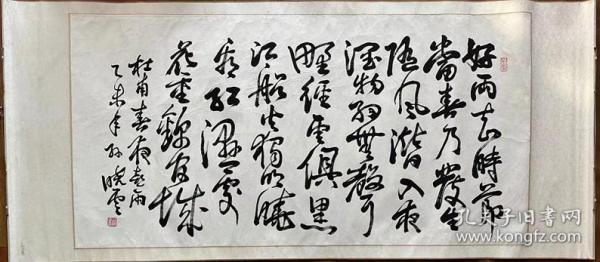 好雨知時節
當春乃發生
随風潜入夜
潤物細無聲
野徑雲俱黑
江船火獨明曉
看紅濕處
花重錦官城
杜甫春夜喜雨
乙未年孙曉雲
孔夫子旧书网
www.kongfz.com